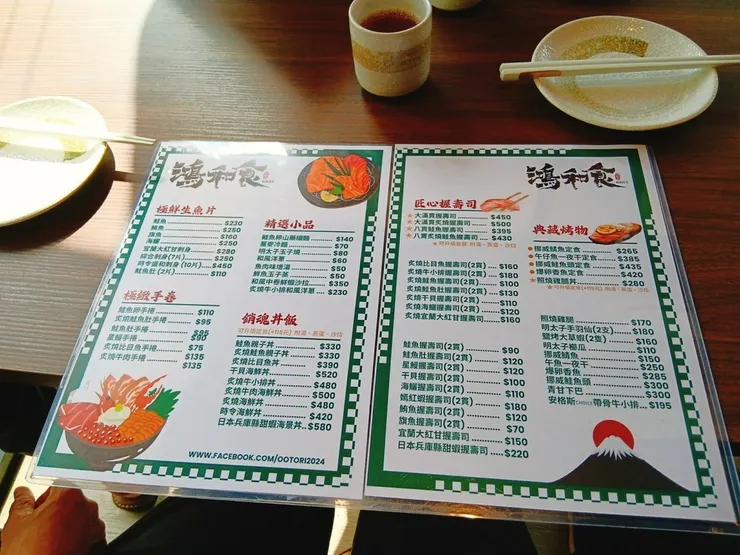 鴻和食
極鮮生魚片
鮭魚 $230
鮪魚 $250
旗魚 $160
海鱺 $250
宜蘭大紅甘刺身 $280
綜合刺身(7片) $250
時令握和刺身(10片) $450
鮭魚肚(2片) $110
極緻手卷
鮭魚卵手捲 $110
炙燒鮭魚肚手捲 $95
鮭魚肚手捲 $85
星鰻手捲 $90
炙燒比目魚手捲 $75
炙燒牛肉手捲 $135
$135
精選小品
鮭魚卵山藥細麵 $140
蕎麥冷麵 $70
明太子玉子燒 $80
和風洋蔥 $60
魚肉味增湯 $50
魚卵玉子蒸 $50
和風中卷鮮蝦沙拉 $350
炙燒牛小排和風洋蔥 $230
銷魂丼飯
可升級定食(+115元) 附湯、蒸蛋、沙拉
鮭魚親子丼 $330
炙燒鮭魚親子丼 $330
炙燒比目魚丼 $390
干貝海鮮丼 $520
炙燒牛小排丼 $480
炙燒牛肉海鮮丼 $500
炙燒海鮮丼 $480
時令海鮮丼 $420
日本兵庫縣甜蝦海景丼 $580
WWW.FACEBOOK.COM/OOTORI2024
鴻和食
匠心握壽司
★大滿貫握壽司 $450
★大滿貫炙燒握壽司 $500
★八貫鮭魚握壽司 $395
★八貫炙燒鮭魚握壽司 $430
可升級定食 附湯、蒸蛋、沙拉
炙燒比目魚握壽司 $160
炙燒牛小排握壽司 $160
炙燒鮭魚握壽司 $100
炙燒鮭魚肚握壽司 $130
炙燒干貝握壽司 $110
炙燒海鱺握壽司 $110
炙燒宜蘭大紅甘握壽司 $160
鮭魚握壽司(2貫) $90
鮭魚肚握壽司(2貫) $110
星鰻握壽司(2貫) $120
干貝握壽司(2貫) $100
海鱺握壽司(2貫) $100
嫣紅蝦握壽司(2貫) $110
鮪魚握壽司(2貫) $120
旗魚握壽司(2貫) $70
宜蘭大紅甘握壽司 $150
日本兵庫縣甜蝦握壽司 $220
典藏烤物
挪威鯖魚定食 $265
午仔魚一夜干定食 $385
挪威鮭魚頭定食 $435
爆卵香魚定食 $420
★照燒雞腿丼 $280
照燒雞腿 $170
明太子手羽仙(2支) $180
鹽烤大草蝦(2隻) $160
明太子櫛瓜 $110
挪威鯖魚 $155
午魚一夜干 $250
爆卵香魚 $285
挪威鮭魚頭 $300
青甘下巴 $300
安格斯CHOICE帶骨牛小排 $195